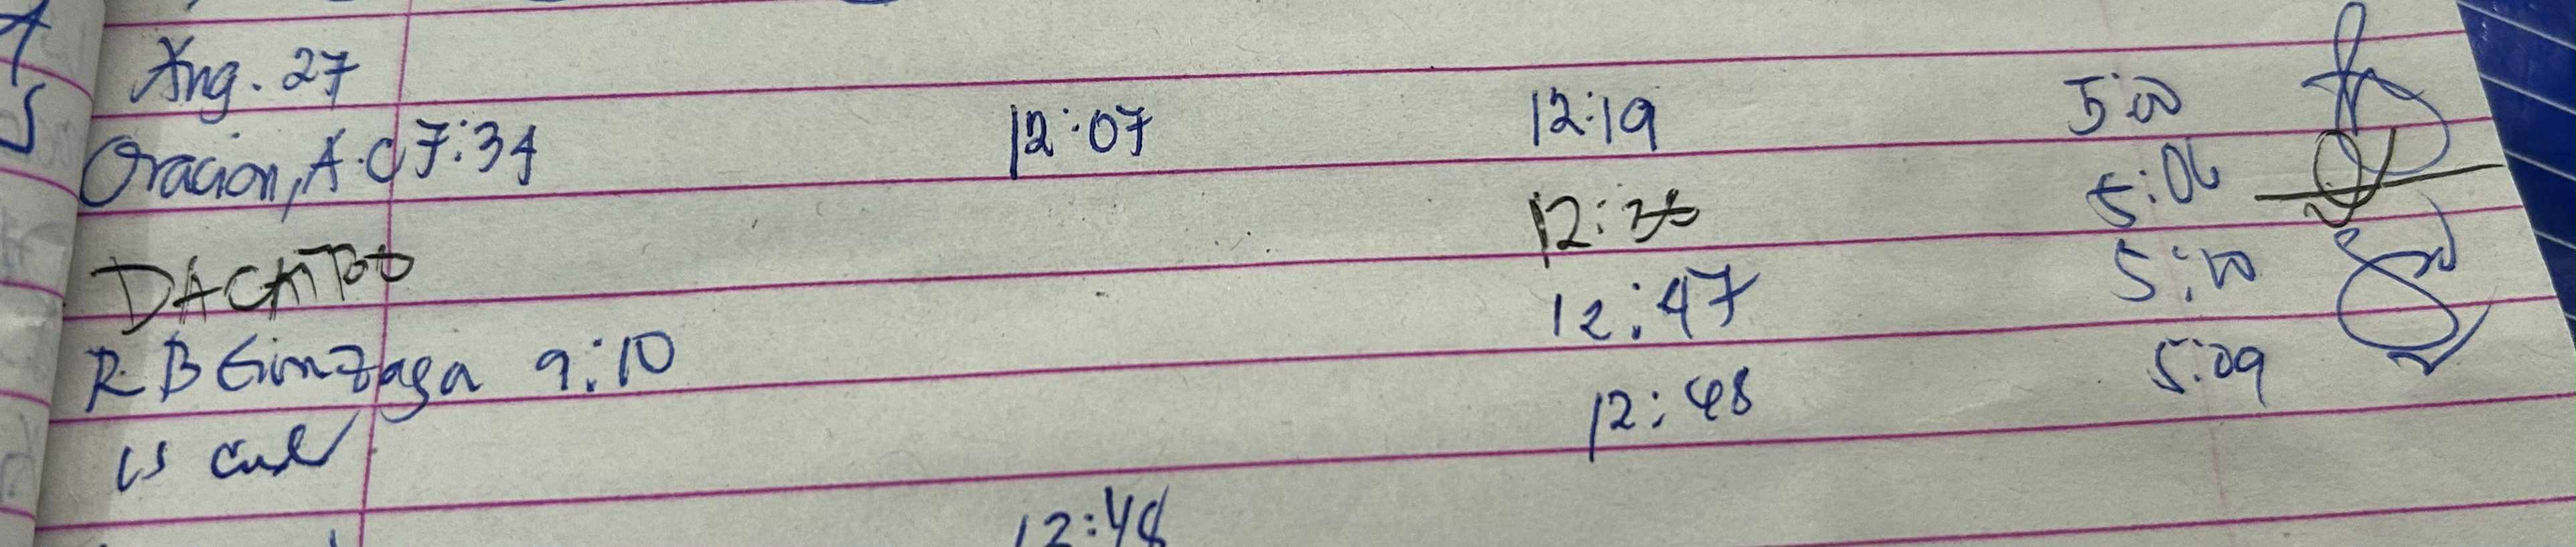 Aug. 27
Oracion, A.C 7:34 12:07 12:19 5:00
12: 5:06
R B Ginzaga 9:10 12:47 5:10
12:48 5:09
12:48